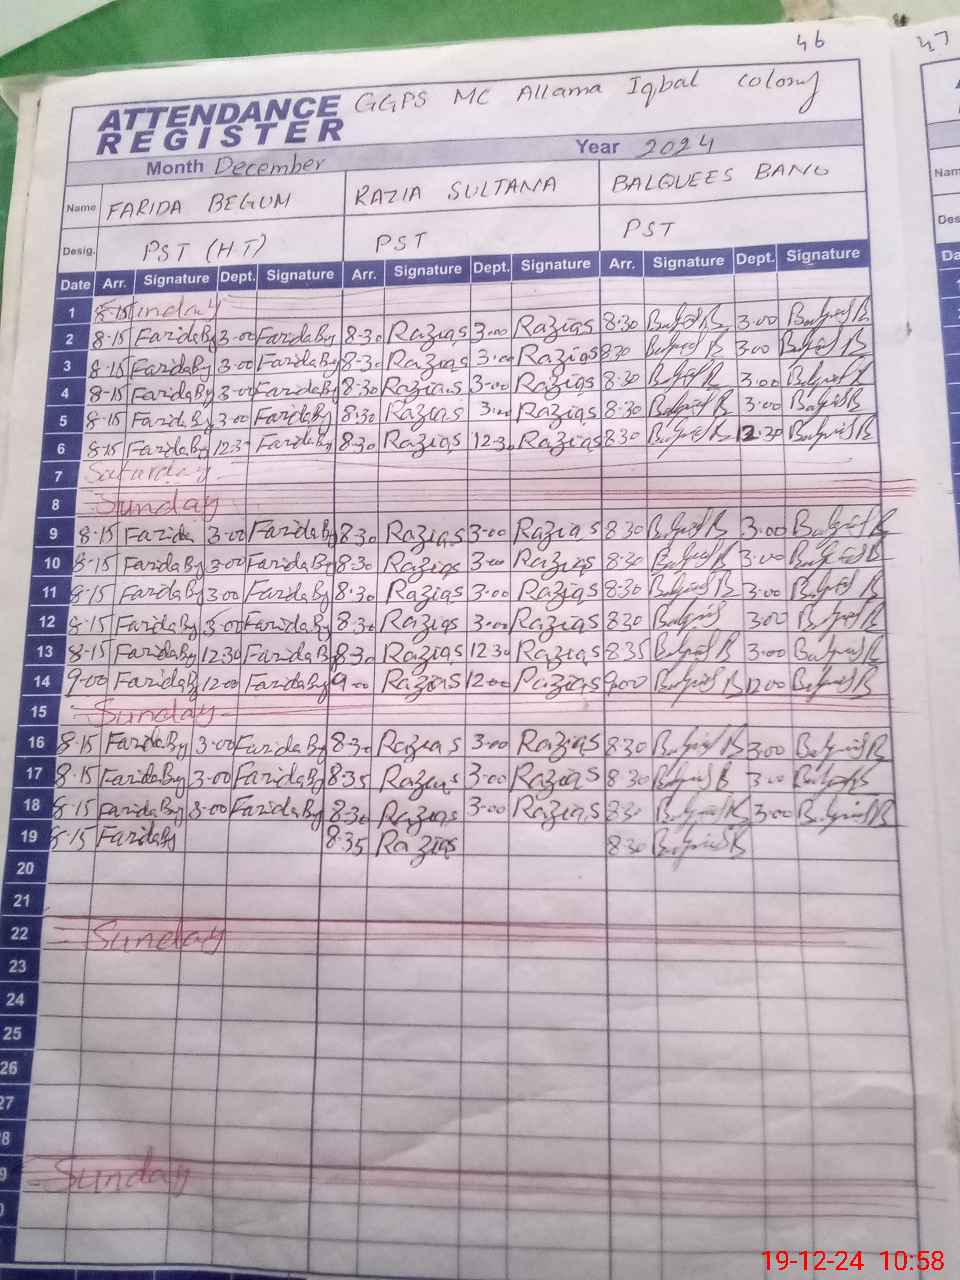 46
47
ATTENDANCE REGISTER GGPS MC Allama Iqbal colony
Month December Year 2024
Name FARIDA BEGUM RAZIA SULTANA BALQUEES BANO
Desig. PST (HT) PST PST
Date Arr. Signature Dept. Signature Arr. Signature Dept. Signature Arr. Signature Dept. Signature
1 8-15 Sunday
2 8-15 FaridaBy 3-00 FaridaBy 8-30 Razias 3-00 Razias 8-30 3-00
3 8-15 FaridaBy 3-00 FaridaBy 8-30 Razias 3-00 Razias 8-30 3-00
4 8-15 FaridaBy 3-00 FaridaBy 8-30 Razias 3-00 Razias 8-30 3-00
5 8-15 FaridaBy 3-00 FaridaBy 8-30 Razias 3-00 Razias 8-30 3-00
6 8-15 FaridaBy 12-30 FaridaBy 8-30 Razias 12-30 Razias 8-30 12-30
7 Saturday
8 Sunday
9 8-15 Farida 3-00 FaridaBy 8-30 Razias 3-00 Razias 8-30 3-00
10 8-15 FaridaBy 3-00 FaridaBy 8-30 Razias 3-00 Razias 8-30 3-00
11 8-15 FaridaBy 3-00 FaridaBy 8-30 Razias 3-00 Razias 8-30 3-00
12 8-15 FaridaBy 3-00 FaridaBy 8-30 Razias 3-00 Razias 8-30 3-00
13 8-15 FaridaBy 12-30 FaridaBy 8-30 Razias 12-30 Razias 8-35 3-00
14 9-00 FaridaB 12-00 FaridaBy 9-00 Razias 12-00 Razias 9-00 12-00
15 Sunday
16 8-15 FaridaBy 3-00 FaridaBy 8-30 Razias 3-00 Razias 8-30 3-00
17 8-15 FaridaBy 3-00 FaridaBy 8-35 Razias 3-00 Razias 8-30 3-00
18 8-15 FaridaBy 3-00 FaridaBy 8-30 Razias 3-00 Razias 8-30 3-00
19 8-15 FaridaBy 8-35 Razias 8-30
20
21
22 Sunday
23
24
25
26
27
8
9 Sunday
0
Nam
Des
Da
19-12-24 10:58